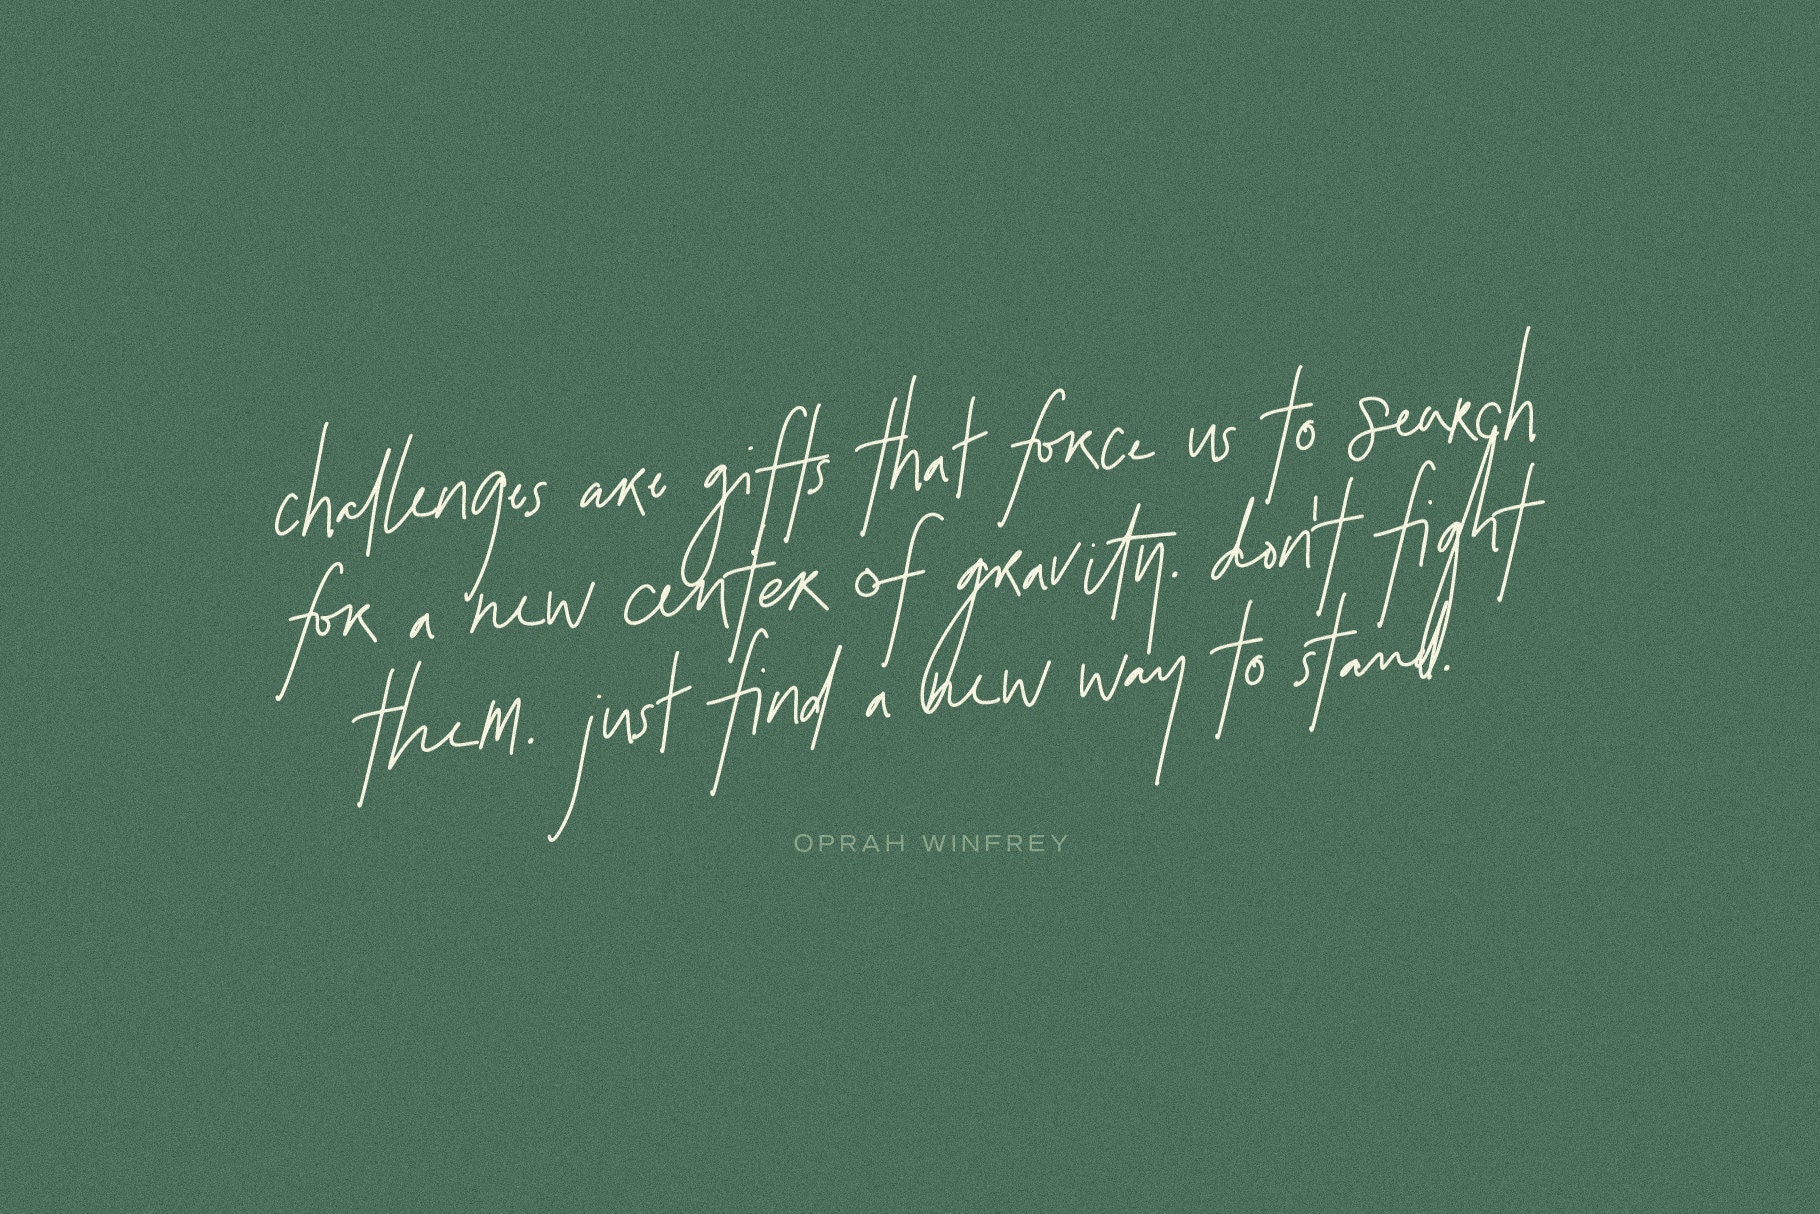 challenges are gifts that force us to search
for a new center of gravity. don't fight
them. just find a new way to stand.
OPRAH WINFREY